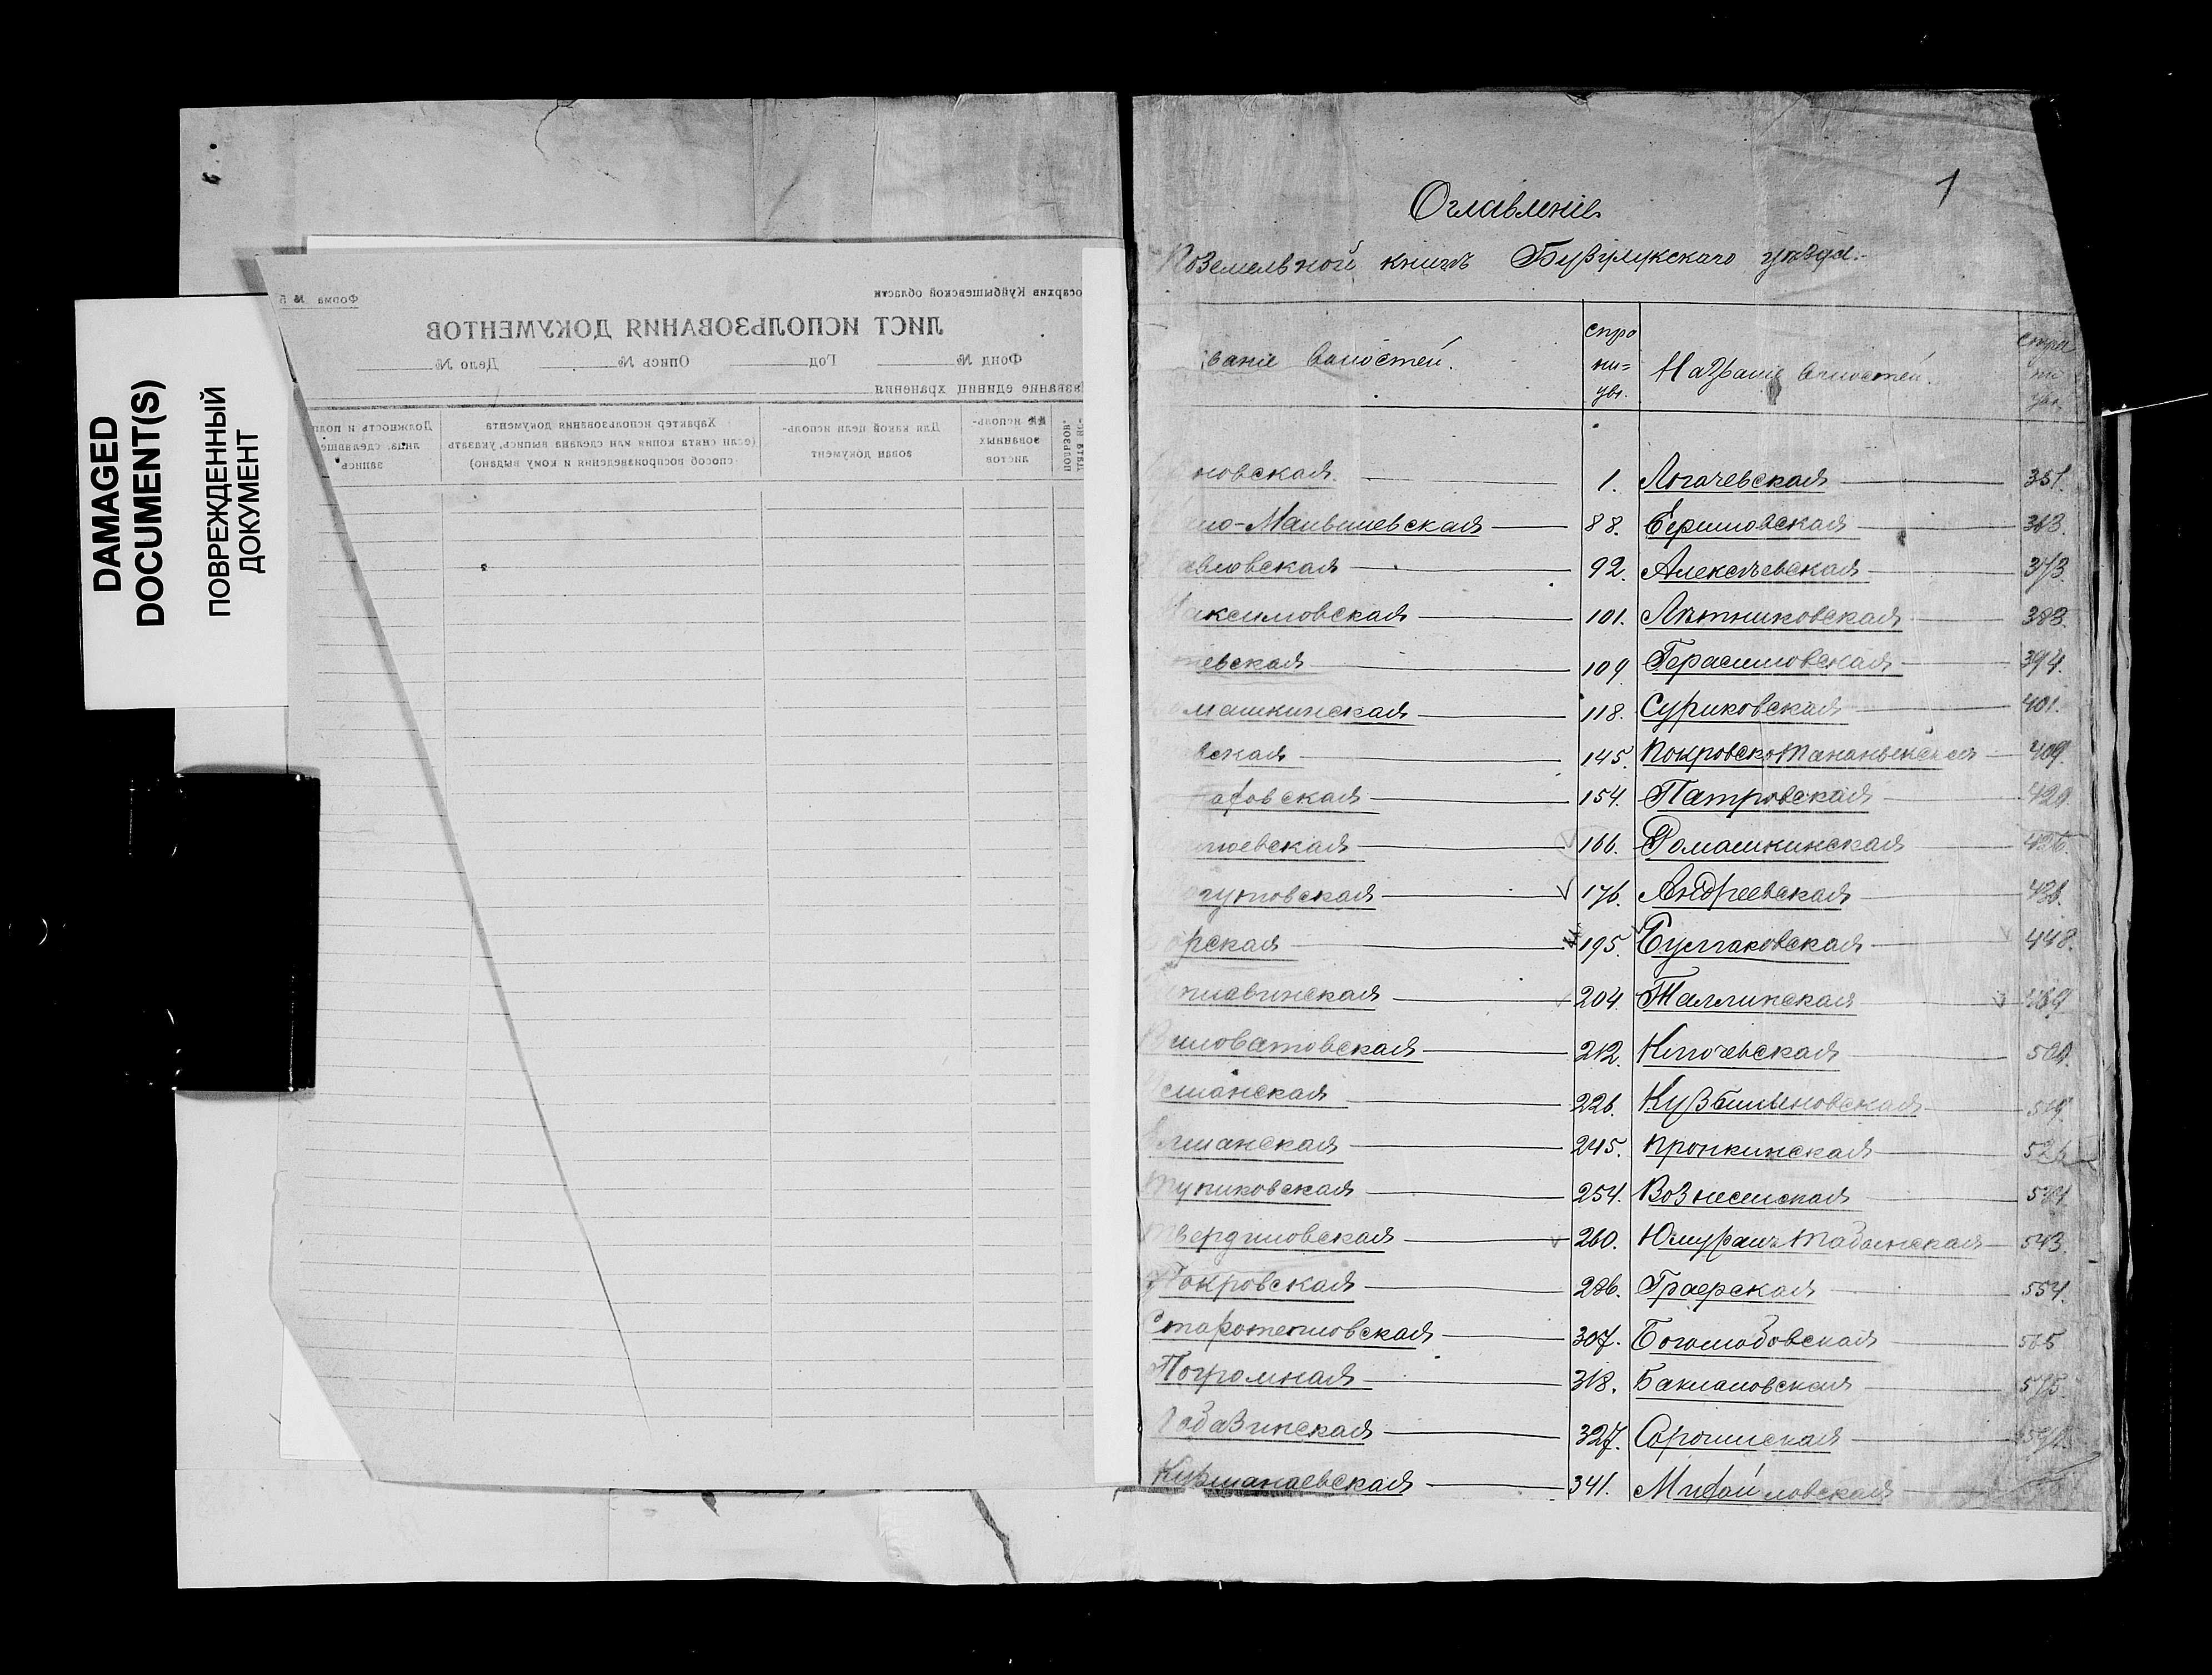 DAMAGED
DOCUMENT(S)
ПОВРЕЖДЕННЫЙ
ДОКУМЕНТ
Форма № 5
осархив Куйбышевской области
ЛИСТ ИСПОЛЬЗОВАНИЯ ДОКУМЕНТОВ
Фонд № Год Опись № Дело №
азвание единиц хранения
№№ исполь-
зованных
листов
Для какой цели исполь-
зован документ
Характер использования документа
(если снята копия или сделана выпись, указать
способ воспроизведения и кому выдано)
Должность и подп
лица, сделавше
запись
1
Оглавленіе
Поземельной книгѣ Бузулукскаго уѣзда.
званіе волостей.
стра
ни=
цы.
Названіе волостей.
стра
ни
цы
новская 1. Логачевская 351.
ло-Малышевская 88. Ефимовская 363.
авловская 92. Алексѣевская 373.
аксимовская 101. Лѣтниковская 383.
невская 109 Герасимовская 394.
машкинская 118. Суриковская 401.
вская 145. Покровско-Тананыкская 409.
афовская 154. Патровская 420.
люевская 166. Ромашкинская
гутовская 176. Андреевская
орская 195. Булгаковская 448.
плавинская 204. Таллинская
Виловатовская 212. Ключевская
сманская 226. Кузьминовская
Елшанская 245. Пронкинская
Тупиковская 254. Вознесенская
Твердиловская 260. Юмуранъ-Табынская 543.
Покровская 286. Грачевская 554.
Старотепловская 307. Боголюбовская 565
Погромная 318. Баклановская 575.
Лабазинская 327. Сорочинская
Курманаевская 341. Михайловская